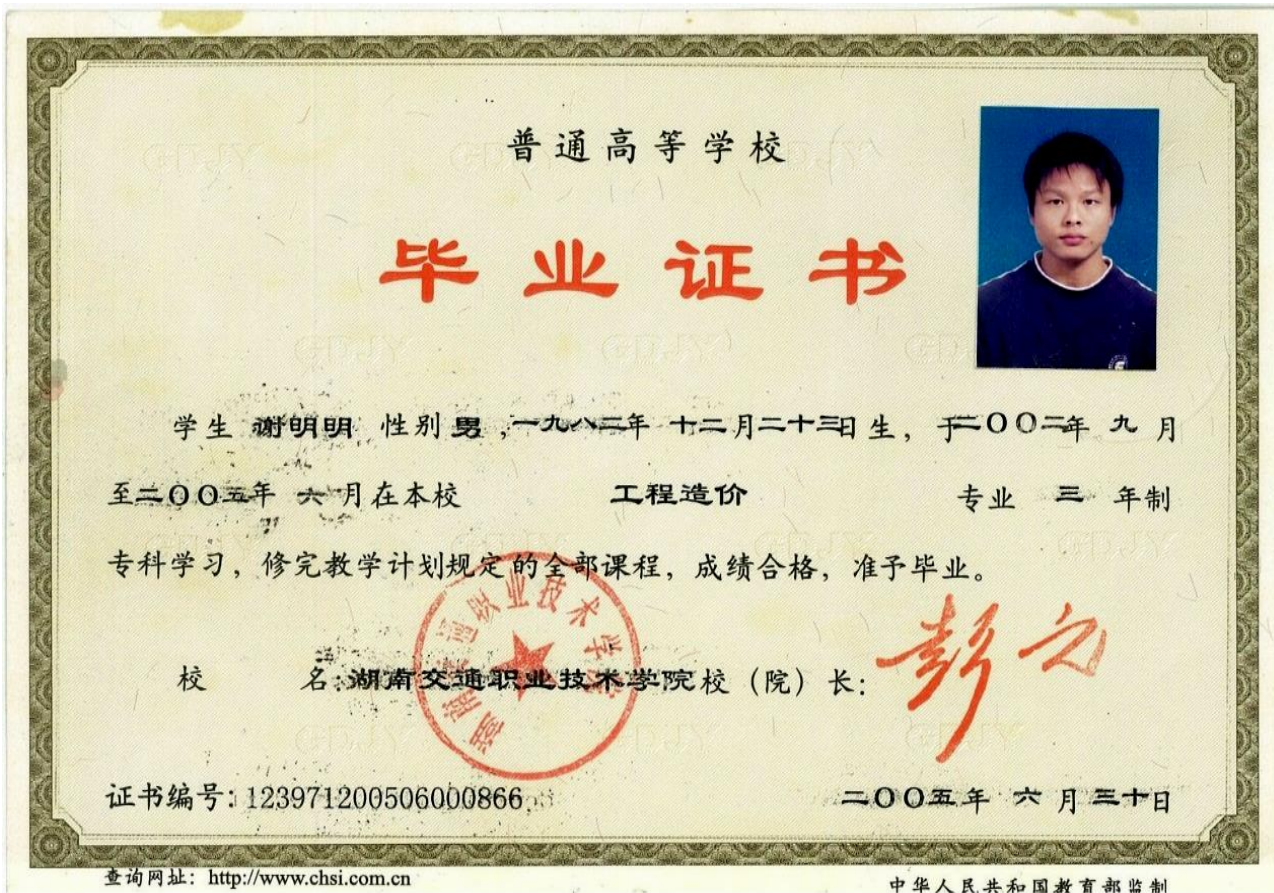 普通高等学校
毕业证书
学生 谢明明 性别 男 ,一九八二年 十二月二十三日生，于二〇〇二年 九 月
至二〇〇五年 六 月在本校 工程造价 专业 三 年制
专科学习，修完教学计划规定的全部课程，成绩合格，准予毕业。
湖南交通职业技术学院
校 名:湖南交通职业技术学院校（院）长:
证书编号: 123971200506000866
二〇〇五年 六 月三十日
查询网址: http://www.chsi.com.cn
中华人民共和国教育部监制
GDJY
GDJY
GDJY
GDJY
GDJY